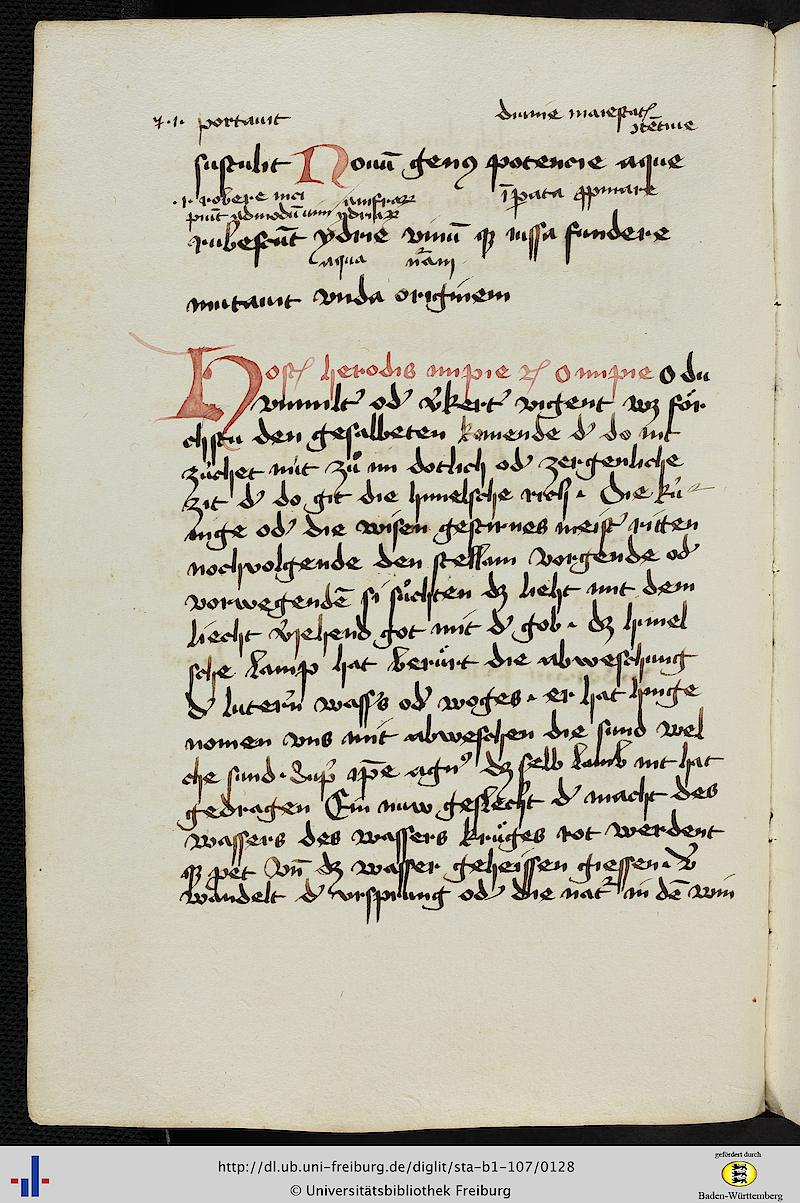 .i. portauit diuine maiestatis
sustulit Nouum genus potencie aque
rubescunt ydrie vinum que iussa fundere
aqua
mutauit vnda originem
Hostis herodis impie etc O impie O du
vnmilter oder verkerter vigent wz för
chstu den gesalbeten komende der do nit
zúchet mit zů im dotlich oder zergenliche
zit der do git die himelsche rich. Die kú
nige oder die wisen gestirnes meister ritten
nochvolgende den stellam vorgende oder
vorwegenden si sůchten dz lieht mit dem
liecht veriehend got mit der gob. dz himel
sche lamp hat berürt die abweschung
der lutern wassers oder woges. er hat hinge
nomen vns mit abweschen die sund wel
che sund. ipse agnus dz selb lamb nit hat
gedragen Ein nuw geslecht der macht des
wassers des wassers krüges rot werdent
que vnd dz wasser geheissen giessen. ver
wandelt der vrsprung oder die natur in den win
http://dl.ub.uni-freiburg.de/diglit/sta-b1-107/0128
© Universitätsbibliothek Freiburg
gefördert durch
Baden-Württemberg